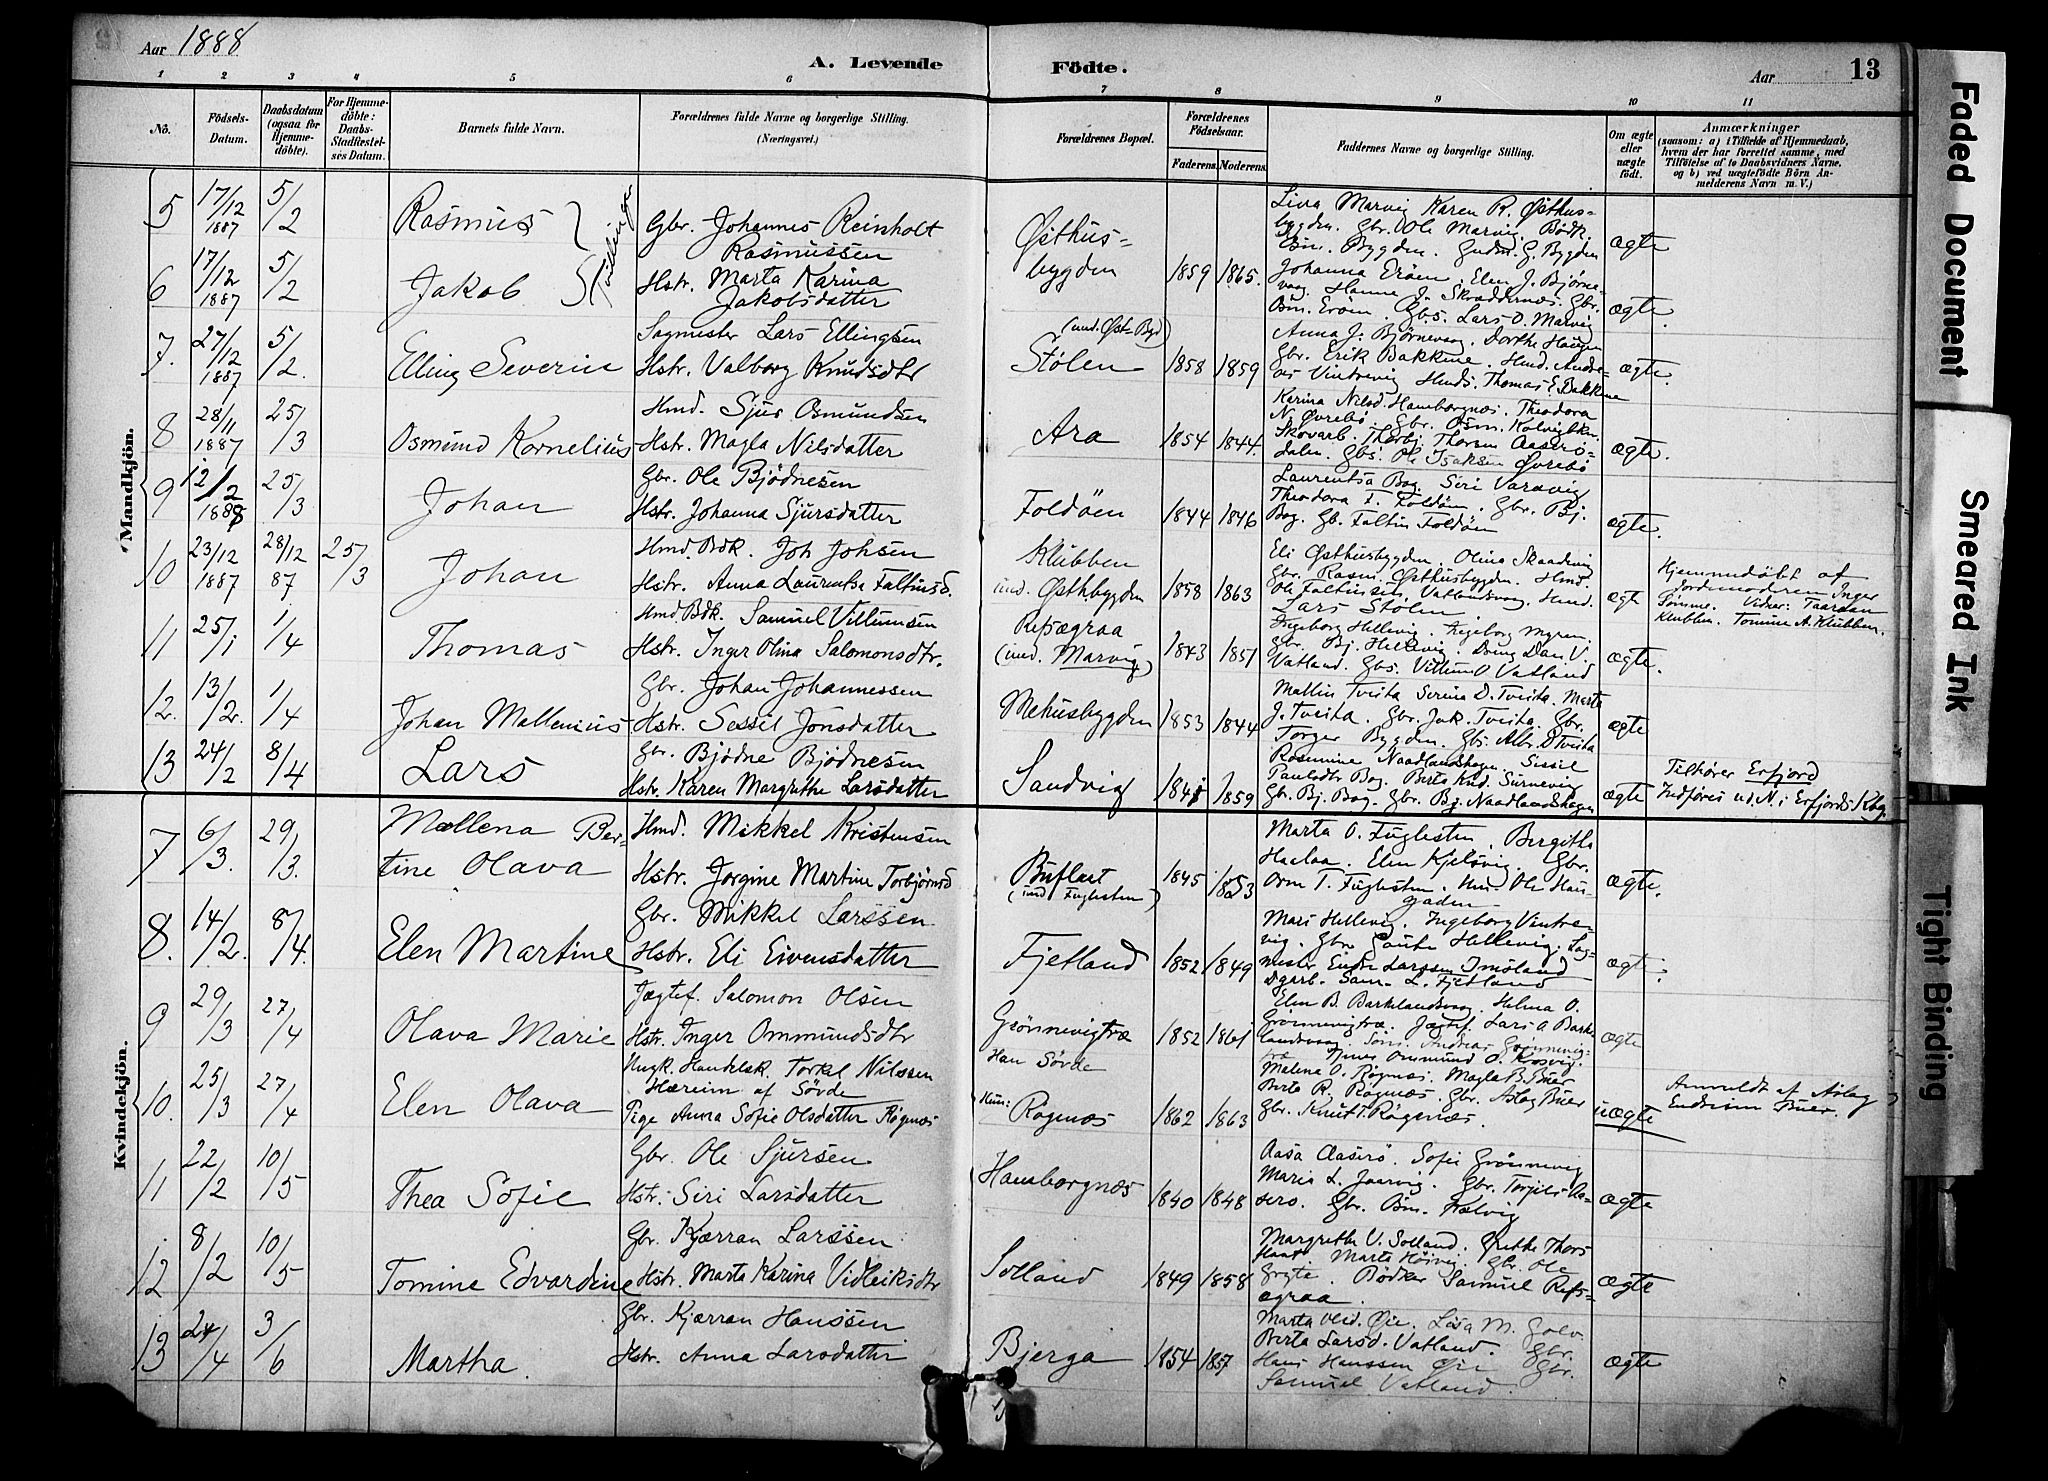 Aar 1888
A. Levende Födte.
Aar 13
1 2 3 4 5 6 7 8 9 10 11
No.
Födsels-Datum.
Daabsdatum (ogsaa for Hjemme-döbte).
For Hjemme-döbte: Daabs-Stadfæstel-ses Datum.
Barnets fulde Navn.
Forældrenes fulde Navne og borgerlige Stilling.
(Næringsvei.)
Forældrenes Bopæl.
Forældrenes Födselsaar.
Faderens. Moderens.
Faddernes Navne og borgerlige Stilling.
Om ægte eller uægte födt.
Anmærkninger
(saasom: a) i Tilfælde af Hjemmedaab,
hvem der har forrettet samme, med
Tilföielse af to Daabsvidners Navne,
og b) ved uægtefödte Börn An-
melderens Navn m. V.)
Mandkjön.
5 17/12 1887 5/2 Rasmus Gbr. Johannes Reinholt
Rasmussen
Østhus-
bygden
Liva Marvig Karen R. Østhus-
bygden. Gbr. Ole Marvig. Bødk.
ægte
6 17/12 1887 5/2 Jakob Tvillinge Hstr. Marta Karina
Jakobsdatter
1859 1865.
Johanna Erøen. Elen J. Bjørne-
vaag. Hanne J. Skræddernæs. Gbr.
Osm. Erøen. Gbs. Lars O. Marvig
ægte.
7. 27/12 1887 5/2. Elling Severin Sagmester Lars Ellingsen
Hstr. Valborg Knudsdtr
(und. Øst-Byd)
Stølen 1858 1859
Anna J. Bjørnevaag. Dorthe Haugen
Gbr. Erik Bakkene. Hmd. Andre-
as Vintrevig Hmds. Thomas E. Bakkene
ægte.
8 28/11 1887 25/3 Osmund Kornelius Hmd. Sjur Osmundsen
Hstr. Magla Nilsdatter
Ara 1854 1844.
Karina Nilsd. Hamborgnæs. Theodora
N. Øvrebø. Gbr. Osm. Kolvig
Skovarb. Thorbj. Thorsen Aaserø-
dalen. Gbs. Ole Isaksen Øvrebø
ægte.
9 12/2 1888 25/3 Johan Gbr. Ole Bjødnesen
Hstr. Johanna Sjursdatter
Foldöen 1844 1846
Laurentsa Bog. Siri Varavig
Theodora F. Foldöen. Gbr. Bj.
Bog. Gb. Faltin Foldöen
ægte.
10 23/12 1887 28/12 87 25/3 Johan Hmd. Bdk. Joh Johsen
Hstr. Anna Laurentse Faltinsd.
Klubben
und. Østhbygden 1858 1863
Eli Østhusbygden. Olina Skaadevig
Gbr. Rasm. Østhusbygden. Hmd.
Ole Faltinsen, Vatlandsvaag. Hmd.
Lars Stølen
ægte
Hjemmedøbt af
Jordemoderen Inger
Sømme. Vidner: Taardan
Klubben. Tomine A. Klubben.
11 25/1 1/4 Thomas Hmd Bdk. Samuel Villumsen
Hstr. Inger Olina Salomonsdtr.
Refsægraa
(und. Marvig) 1843 1851
Ingeborg Hellevig. Ingeborg Myren.
Gbr. Bj. Hellevig. Dreng Dan. V.
Vatland. Gbs. Villum O Vatland
ægte.
12. 13/2. 1/4 Johan Mallenius Gbr. Johan Johannessen
Hstr. Sessil Jonsdatter
Mehusbygden 1853 1844
Mallin Tveita Serina D. Tveita. Marta
J. Tveita. Gbr. Jak. Tveita. Gbr.
Torger Bygden. Gbs. Albr. D Tveita
ægte
13 24/2 8/4 Lars Gbr. Bjødne Bjødnesen
Hstr. Karen Margrethe Larsdatter
Sandvig 1859
Rosemine Naadlandshagen. Sissil
Paulsdtr Bog. Berta Knd. Surnevig
Gbr. Bj. Bog. Gbr. Bj. Naadlandshagen
ægte
Tilhører Erfjord
Indføres ud. N. i Erfjords Kbg.
Kvindekjön.
7 6/3. 29/3. Mallena Ber-
tine Olava
Hmd. Mikkel Kristensen
Hstr. Jorgine Martine Torbjørnsd
Buflæt
(und Fuglesten) 1845 1853
Marta O. Fuglesten. Birgithe
Haalaa. Elen Kjelsvig. Gbr.
Orm T. Fuglesten. Um. Ole Hau-
gaden
ægte.
8. 14/2. 8/4. Elen Martine Gbr. Mikkel Larssen
Hstr. Eli Eivensdatter
Fjetland 1852 1849
Mari Hellevig. Ingeborg Vintre-
vig. Gbr Gaute Hellevig. Sag-
mester Endre Larssen Imsland
Dgarb. Sam. L. Fjetland
ægte.
9 29/3 27/4 Olava Marie Jægtef. Salomon Olsen
Hstr. Inger Ommundsdtr
Grønnevigtræ 1852 1861
Elen B. Barklandsvaag. Helena O.
Grønnevigtræ. Jægtef. Lars O Barke
landsvaag. Søm. Andreas Grønnevig-
træ Tjener Ommund O. Kosvig
ægte
10. 25/3 27/4 Elen Olava Ungk. Handelsk. Torkel Nilssen
Hæreim af Søvde
Pige Anna Sofie Olsdatter Rögnæs
Han Søvde
Hun: Rögnæs 1862 1863
Malena O. Røgnæs. Magla B. Buer
Berte R. Røgnæs. Gbr. Aslag Buer
Gbr. Knut T. Røgenæs.
uægte
Anmeldt af Aslag
Endresen Buer.
11 22/2 10/5 Thea Sofie Gbr. Ole Sjursen
Hstr. Siri Larsdatter
Hamborgnæs 1840 1848
Aasa Aaserø. Sofie Grønnevig
Maria L. Jaarvig. Gbr. Torjils Aa-
serø. Gbr. Bm. Kolvig
ægte
12 8/2 10/5 Tomine Edvardine Gbr. Kjærran Larssen
Hstr. Marta Karina Vidleiksdtr
Solland 1849 1858
Margrethe V. Solland. Grethe Thors
Haat Marta Høivig. Gbr. Ole
Gryte. Bødker Samuel Refs-
ægraa.
ægte
13 24/4 3/6 Martha. Gbr. Kjærran Hanssen
Hstr. Anna Larsdatter
Bjerga 1854 1857
Marta Øie. Lisa M. Golv.
Berta Larsd. Vatland. Gbr.
Hans Hanssen Øie Gbr.
Samuel Vatland.
ægte
Faded Document
Smeared Ink
Tight Binding